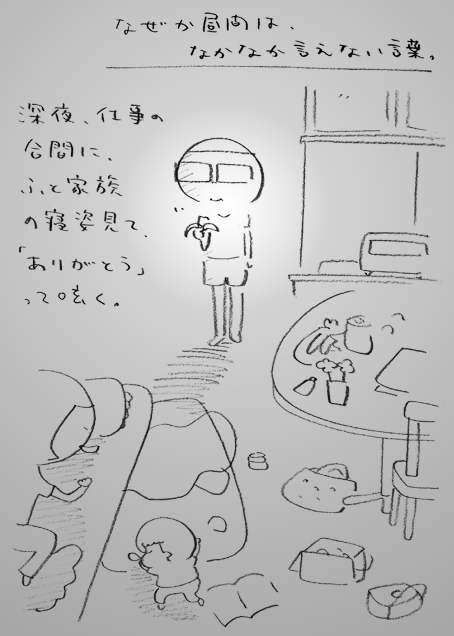 なぜか昼間は、
なかなか言えない言葉。
深夜、仕事の
合間に、
ふと家族
の寝姿見て、
「ありがとう」
って呟く。